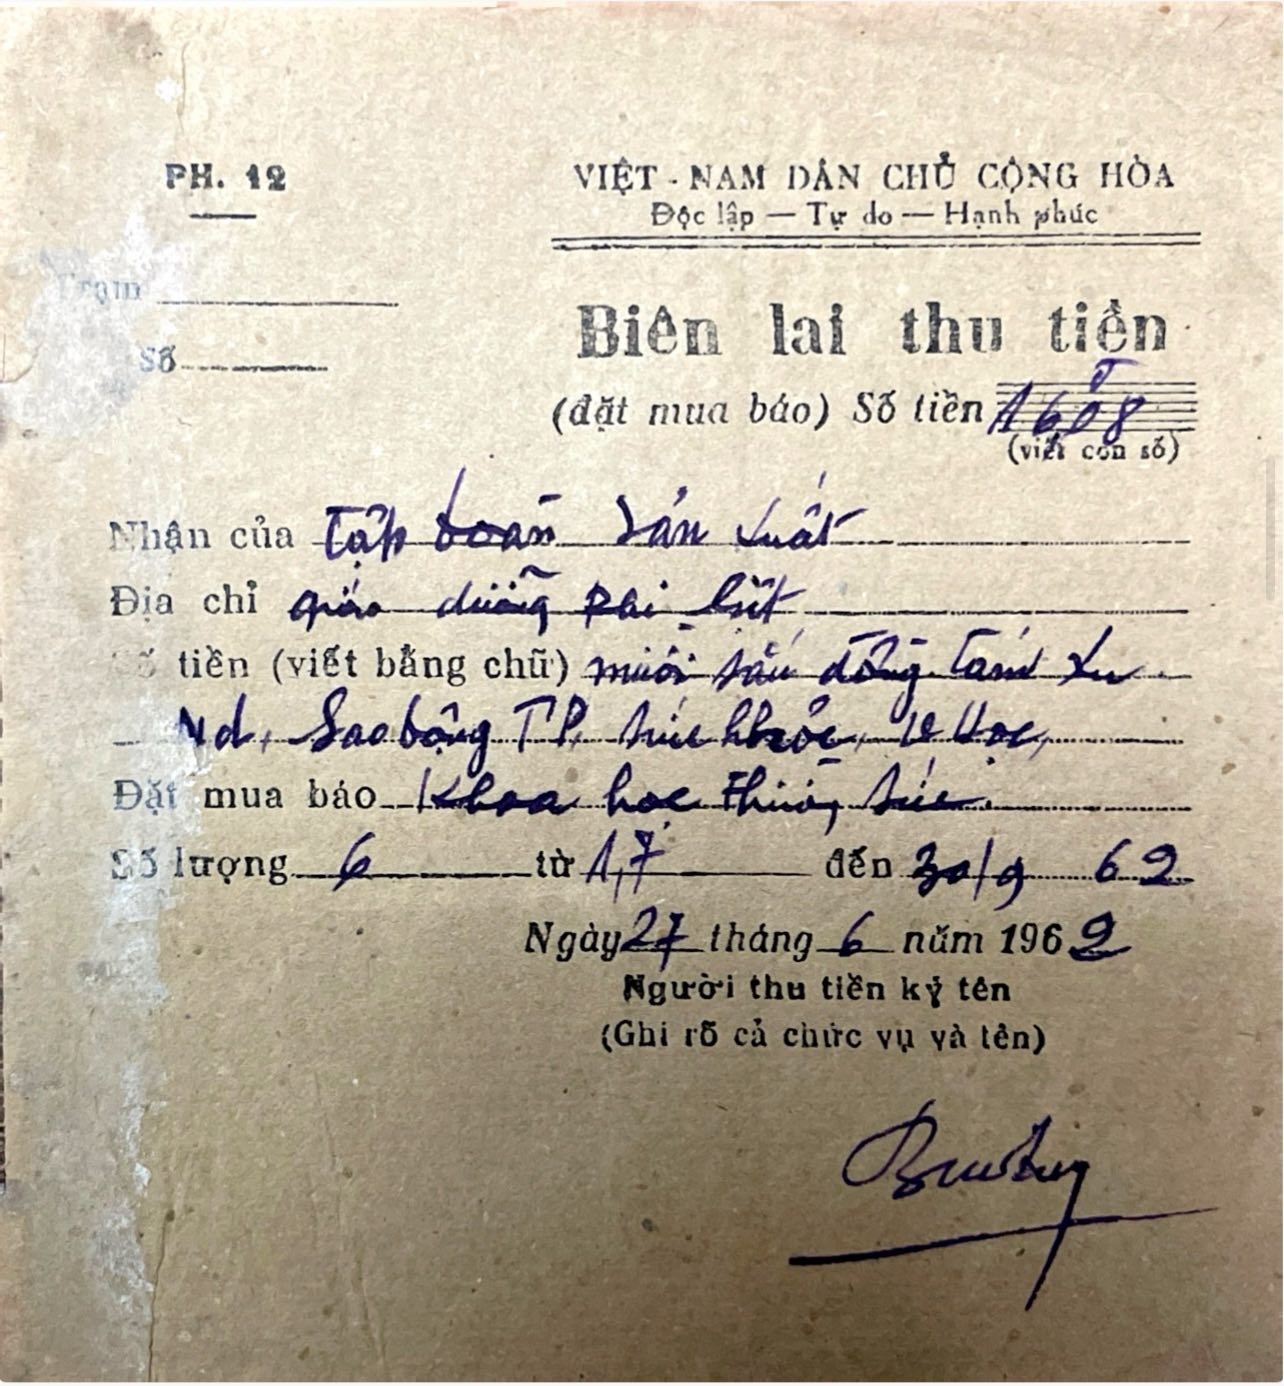 PH. 12
VIỆT - NAM DÂN CHỦ CỘNG HÒA
Độc lập — Tự do — Hạnh phúc
Trạm
Số
Biên lai thu tiền
(đặt mua báo) Số tiền 16đ08
(viết con số)
Nhận của Tập đoàn sản xuất
Địa chỉ
Số tiền (viết bằng chữ) mười sáu đồng tám xu
Nd, TP, sức khỏe, Học,
Đặt mua báo Khoa học thường thức.
Số lượng 6 từ 1,7 đến 30/9 62
Ngày 27 tháng 6 năm 1962
Người thu tiền ký tên
(Ghi rõ cả chức vụ và tên)